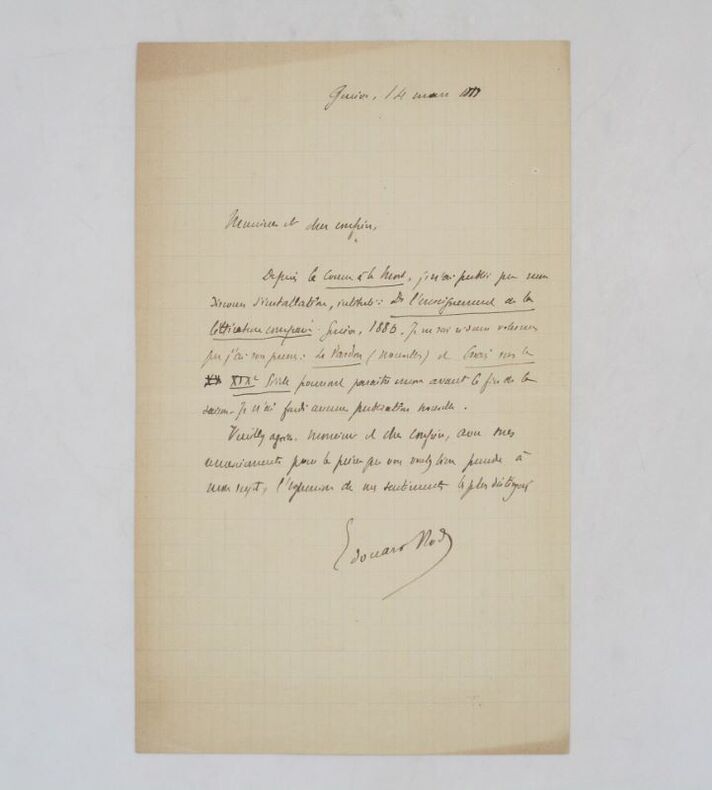 Genève, 14 mars
Monsieur et cher confrère,
Depuis la Course à la Mort, je n'ai publié que mon
discours d'installation, intitulé: De l'enseignement de la
littérature comparée. Genève, 1886. Je
que j'ai sous presse: Le Pardon (nouvelles) et Essais sur le
XIXe Siècle pourront paraître encore avant la fin de la
saison. Je n'ai fondé aucune publication nouvelle.
Veuillez agréer, Monsieur et cher confrère, avec mes
remerciements pour la peine que vous voulez bien prendre à
mon sujet, l'expression de mes sentiments les plus distingués
Edouard Rod